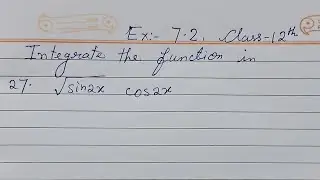 Ex:- 7.2, Class-12th
Integrate the function in
27. √sin2x cos2x